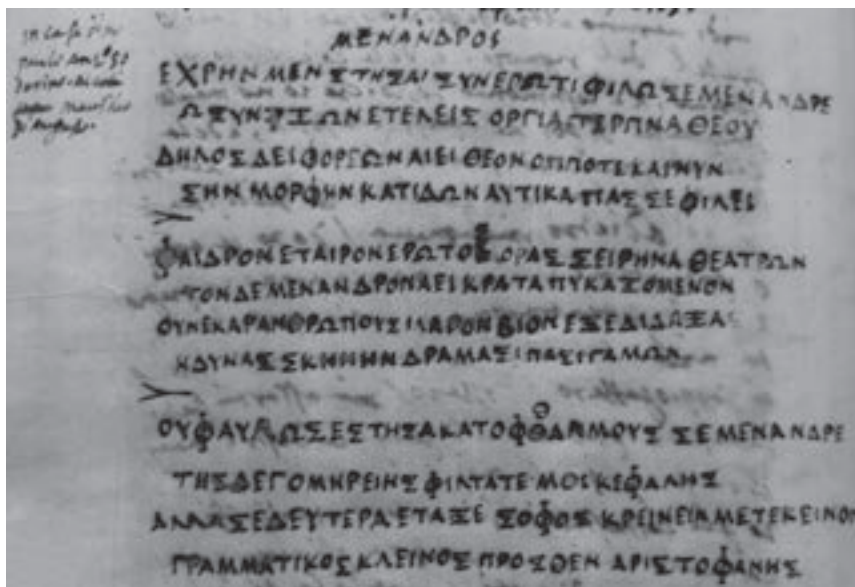 ΜΕΝΑΝΔΡΟΣ
ΕΧΡΗΝ ΜΕΝ ΣΤΗΣΑΙ ΣΥΝΕΡΩΤΙ ΦΙΛΩ ΣΕ ΜΕΝΑΝΔΡΕ
Ω ΣΥΝΖΩΝ ΕΤΕΛΕΙΣ ΟΡΓΙΑ ΤΕΡΠΝΑ ΘΕΟΥ
ΔΗΛΟΣ ΔΕΙ ΦΟΡΓΩΝ ΑΙΕΙ ΘΕΟΝ ΟΠΠΟΤΕ ΚΑΙ ΝΥΝ
ΣΗΝ ΜΟΡΦΗΝ ΚΑΤΙΔΩΝ ΑΥΤΙΚΑ ΠΑΣ ΣΕ ΦΙΛΕΙ
ΦΑΙΔΡΟΝ ΕΤΑΙΡΟΝ ΕΡΩΤΟΣ ΟΡΑΣ ΣΕΙΡΗΝΑ ΘΕΑΤΡΩΝ
ΤΟΝΔΕ ΜΕΝΑΝΔΡΟΝ ΑΕΙ ΚΡΑΤΑ ΠΥΚΑΖΟΜΕΝΟΝ
ΟΥΝΕΚ ΑΡ ΑΝΘΡΩΠΟΥΣ ΙΛΑΡΟΝ ΒΙΟΝ ΕΞΕΔΙΔΩΞΑ
ΗΔΥΝΑΣ ΣΚΗΝΗΝ ΔΡΑΜΑΣΙ ΠΑΣΙ ΓΑΜΩΝ
ΟΥ ΦΑΥΛΩΣ ΕΣΤΗΣΑ ΚΑΤ ΟΦΘΑΛΜΟΥΣ ΣΕ ΜΕΝΑΝΔΡΕ
ΤΗΣΔΕ Γ ΟΜΗΡΕΙΗΣ ΦΙΛΤΑΤΕ ΜΟΙ ΚΕΦΑΛΗΣ
ΑΛΛΑ ΣΕ ΔΕΥΤΕΡΑ ΕΤΑΞΕ ΣΟΦΟΣ ΚΡΕΙΝΕΙΝ ΜΕΤ ΕΚΕΙΝΟΝ
ΓΡΑΜΜΑΤΙΚΟΣ ΚΛΕΙΝΟΣ ΠΡΟΣΘΕΝ ΑΡΙΣΤΟΦΑΝΗΣ